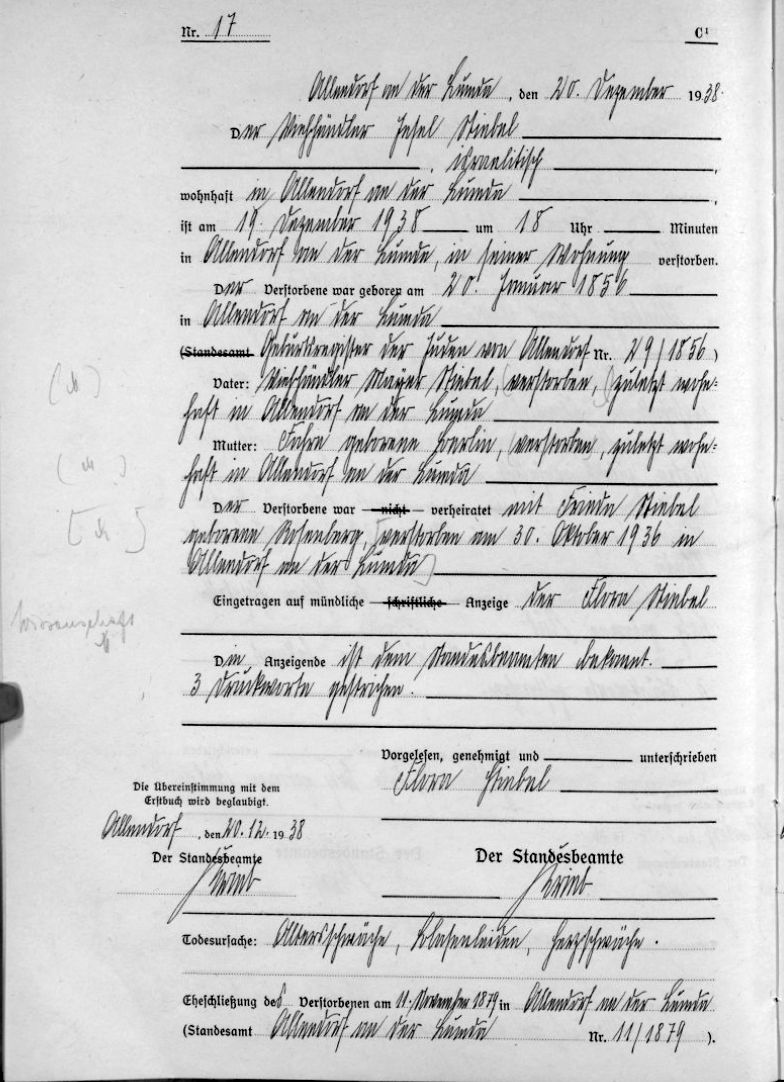 Nr. 17 C¹
Allendorf an der Lumda, den 20. Dezember 1938.
Der Viehhändler Jesel Stiebel
, israelitisch,
wohnhaft in Allendorf an der Lumda,
ist am 19. Dezember 1938 um 18 Uhr Minuten
in Allendorf an der Lumda, in seiner Wohnung verstorben.
Der Verstorbene war geboren am 20. Januar 1856
in Allendorf an der Lumda
(Standesamt Geburtsregister der Juden von Allendorf Nr. 29/1856)
Vater: Viehhändler Mayer Stiebel, (verstorben,) zuletzt wohn=
haft in Allendorf an der Lumda
Mutter: geborene (verstorben, zuletzt wohn=
haft in Allendorf an der Lumda
Der Verstorbene war nicht verheiratet mit Frieda Stiebel
geborene Rosenberg, [verstorben am 30. Oktober 1936 in
Allendorf an der Lumda]
Eingetragen auf mündliche schriftliche Anzeige der Flora Stiebel
Die Anzeigende ist dem Standesbeamten bekannt.
3 Druckworte gestrichen.
Vorgelesen, genehmigt und unterschrieben
Flora Stiebel
Die Übereinstimmung mit dem
Erstbuch wird beglaubigt.
Allendorf, den 20.12.1938
Der Standesbeamte
Der Standesbeamte
Todesursache: Altersschwäche, Blasenleiden, Herzschwäche.
Eheschließung des Verstorbenen am 11. November 1879 in Allendorf an der Lumda
(Standesamt Allendorf an der Lumda Nr. 11/1879).